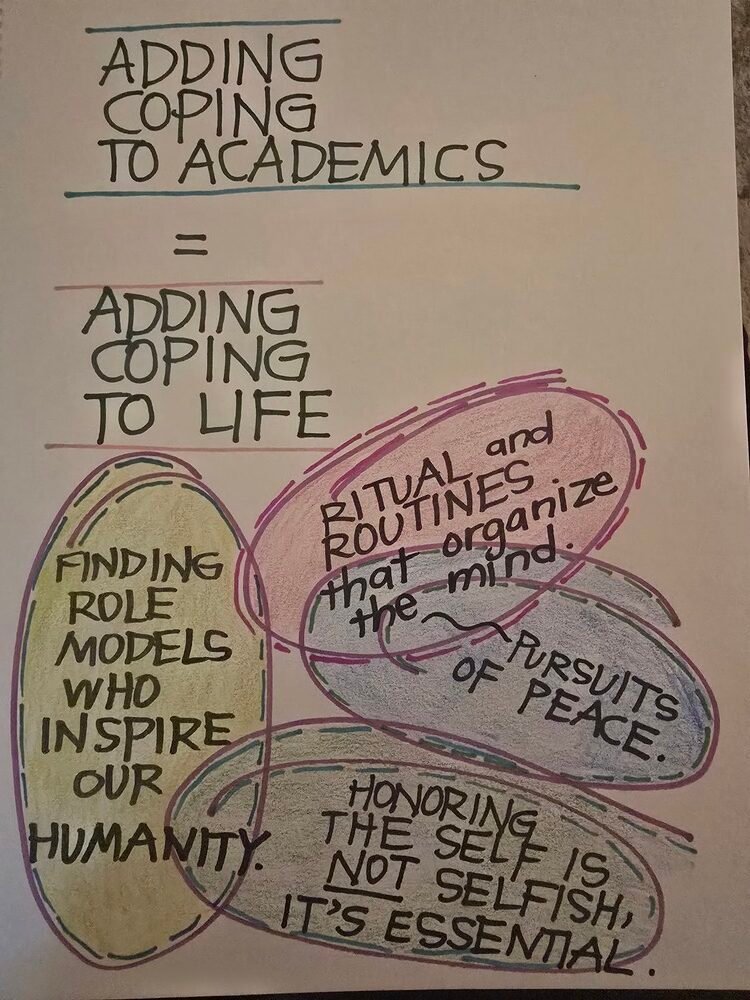 ADDING
COPING
TO ACADEMICS
=
ADDING
COPING
TO LIFE
RITUAL and
ROUTINES
that organize
the mind.
PURSUITS
OF PEACE.
FINDING
ROLE
MODELS
WHO
INSPIRE
OUR
HUMANITY.
HONORING
THE SELF IS
NOT SELFISH,
IT'S ESSENTIAL.